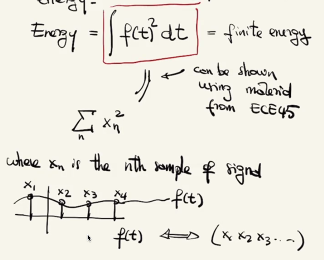 Energy.
Energy = ∫ f(t)² dt = finite energy
can be shown
using material
from ECE45
∑ₙ xₙ²
where xₙ is the nth sample of signal
x₁ x₂ x₃ x₄ f(t)
f(t) ⟺ (x₁ x₂ x₃ ....)